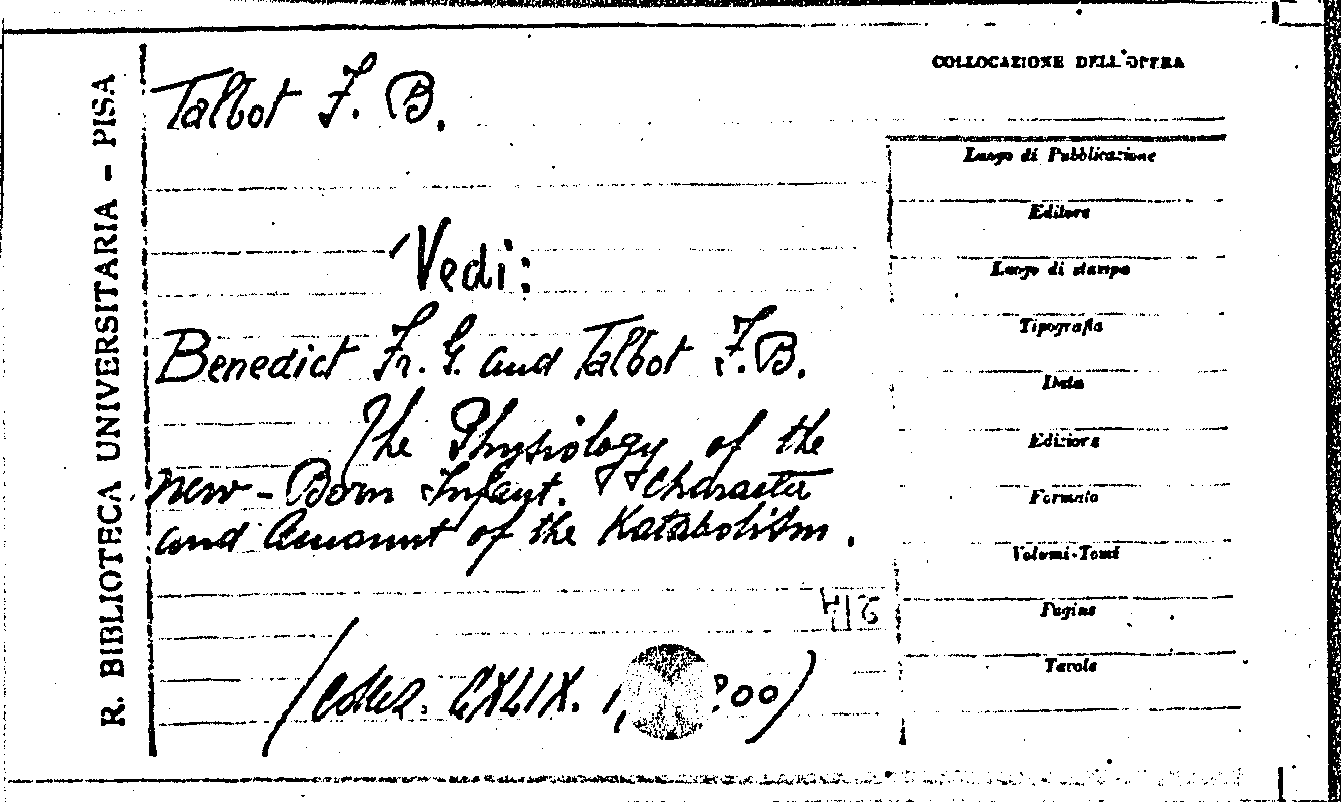 R. BIBLIOTECA UNIVERSITARIA - PISA
Talbot F. B.
Vedi:
Benedict Fr. G. and Talbot F. B.
The Physiology of the
new-Born Infant. Character
and Amount of the Katabolism.
(Collez. CXLIX. 1, 00)
COLLOCAZIONE DELL'OPERA
Luogo di Pubblicazione
Editore
Luogo di stampa
Tipografia
Data
Edizione
Formato
Volumi-Tomi
Pagine
Tavole